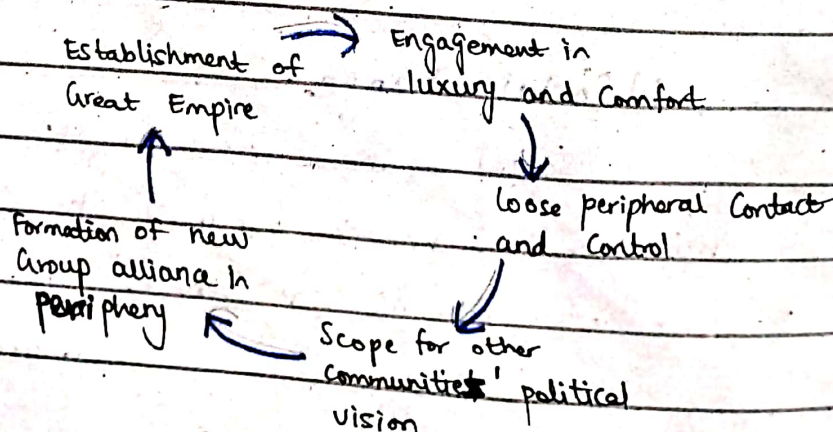 Establishment of
Great Empire
Engagement in
luxury and Comfort
Loose peripheral Contact
and Control
Scope for other
communities' political
vision
Formation of new
Group alliance In
periphery